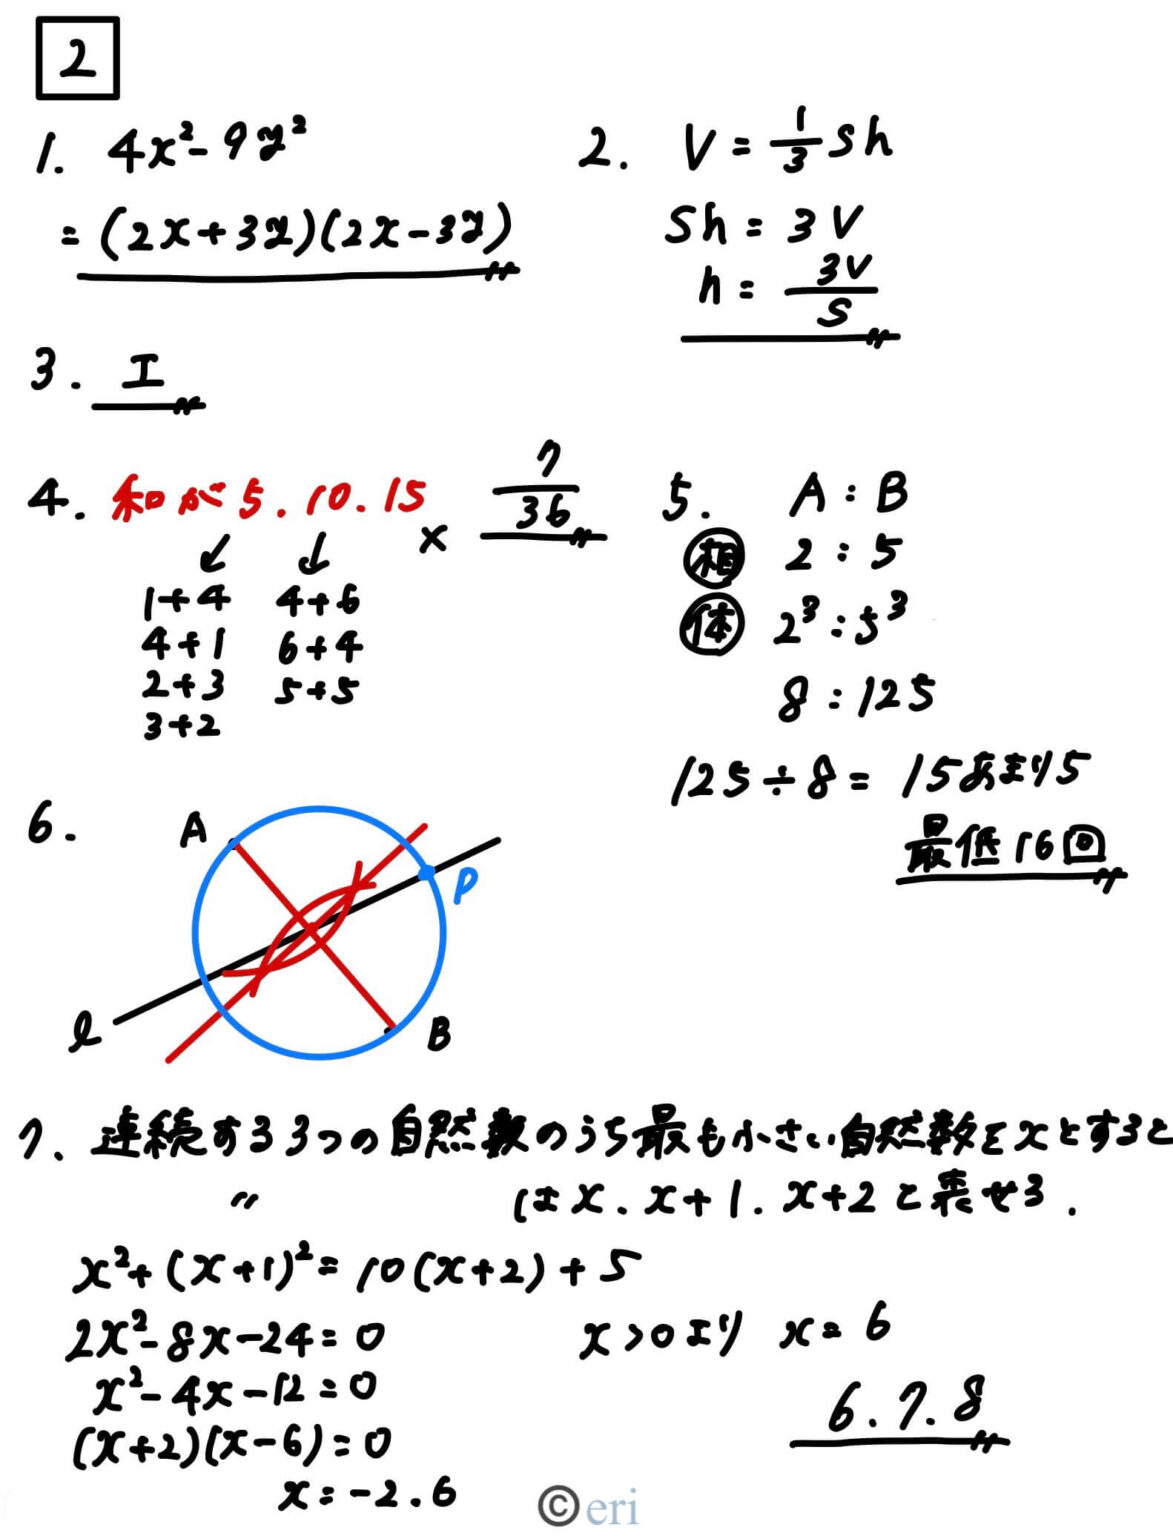 2
1. 4x²-9y²
= (2x+3y)(2x-3y)
2. V = 1/3 Sh
Sh = 3V
h = 3V/S
3. エ
4. 和が5.10.15
×
7/36
1+4 4+6
4+1 6+4
2+3 5+5
3+2
5. A : B
相 2 : 5
体 2³ : 5³
8 : 125
125÷8 = 15あまり5
最低16回
6. A
P
ℓ
B
7. 連続する3つの自然数のうち最も小さい自然数をxとすると
〃 はx. x+1. x+2と表せる.
x²+(x+1)²=10(x+2)+5
2x²-8x-24=0
x²-4x-12=0
(x+2)(x-6)=0
x=-2.6
x>0より x=6
6.7.8
©eri